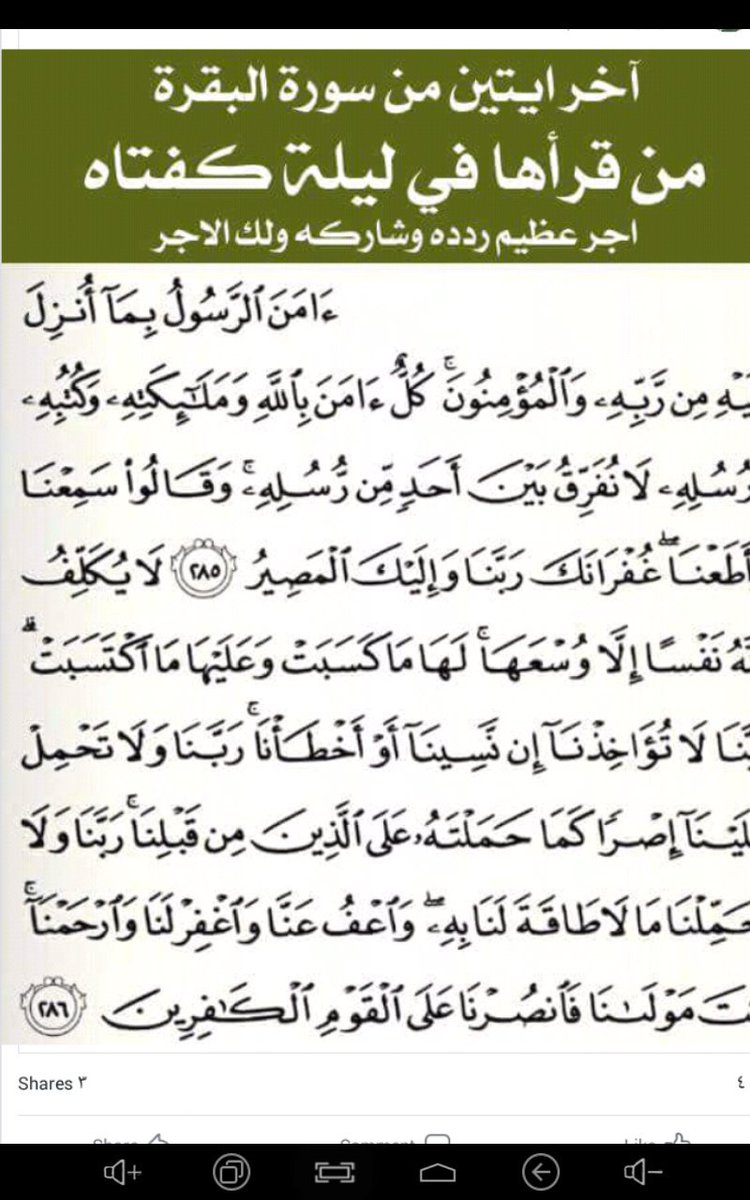 آخر ايتين من سورة البقرة
من قرأها في ليلة كفتاه
اجر عظيم ردده وشاركه ولك الاجر
ءَامَنَ ٱلرَّسُولُ بِمَآ أُنزِلَ
يْهِ مِن رَّبِّهِۦ وَٱلْمُؤْمِنُونَ ۚ كُلٌّ ءَامَنَ بِٱللَّهِ وَمَلَٰٓئِكَتِهِۦ وَكُتُبِهِۦ
رُسُلِهِۦ لَا نُفَرِّقُ بَيْنَ أَحَدٍ مِّن رُّسُلِهِۦ ۚ وَقَالُوا۟ سَمِعْنَا
أَطَعْنَا ۖ غُفْرَانَكَ رَبَّنَا وَإِلَيْكَ ٱلْمَصِيرُ ٢٨٥ لَا يُكَلِّفُ
هُ نَفْسًا إِلَّا وُسْعَهَا ۚ لَهَا مَا كَسَبَتْ وَعَلَيْهَا مَا ٱكْتَسَبَتْ ۗ
بَّنَا لَا تُؤَاخِذْنَآ إِن نَّسِينَآ أَوْ أَخْطَأْنَا ۚ رَبَّنَا وَلَا تَحْمِلْ
لَيْنَآ إِصْرًا كَمَا حَمَلْتَهُۥ عَلَى ٱلَّذِينَ مِن قَبْلِنَا ۚ رَبَّنَا وَلَا
حَمِّلْنَا مَا لَا طَاقَةَ لَنَا بِهِۦ ۖ وَٱعْفُ عَنَّا وَٱغْفِرْ لَنَا وَٱرْحَمْنَآ ۚ
نتَ مَوْلَىٰنَا فَٱنصُرْنَا عَلَى ٱلْقَوْمِ ٱلْكَٰفِرِينَ ٢٨٦
٤
Shares ٣